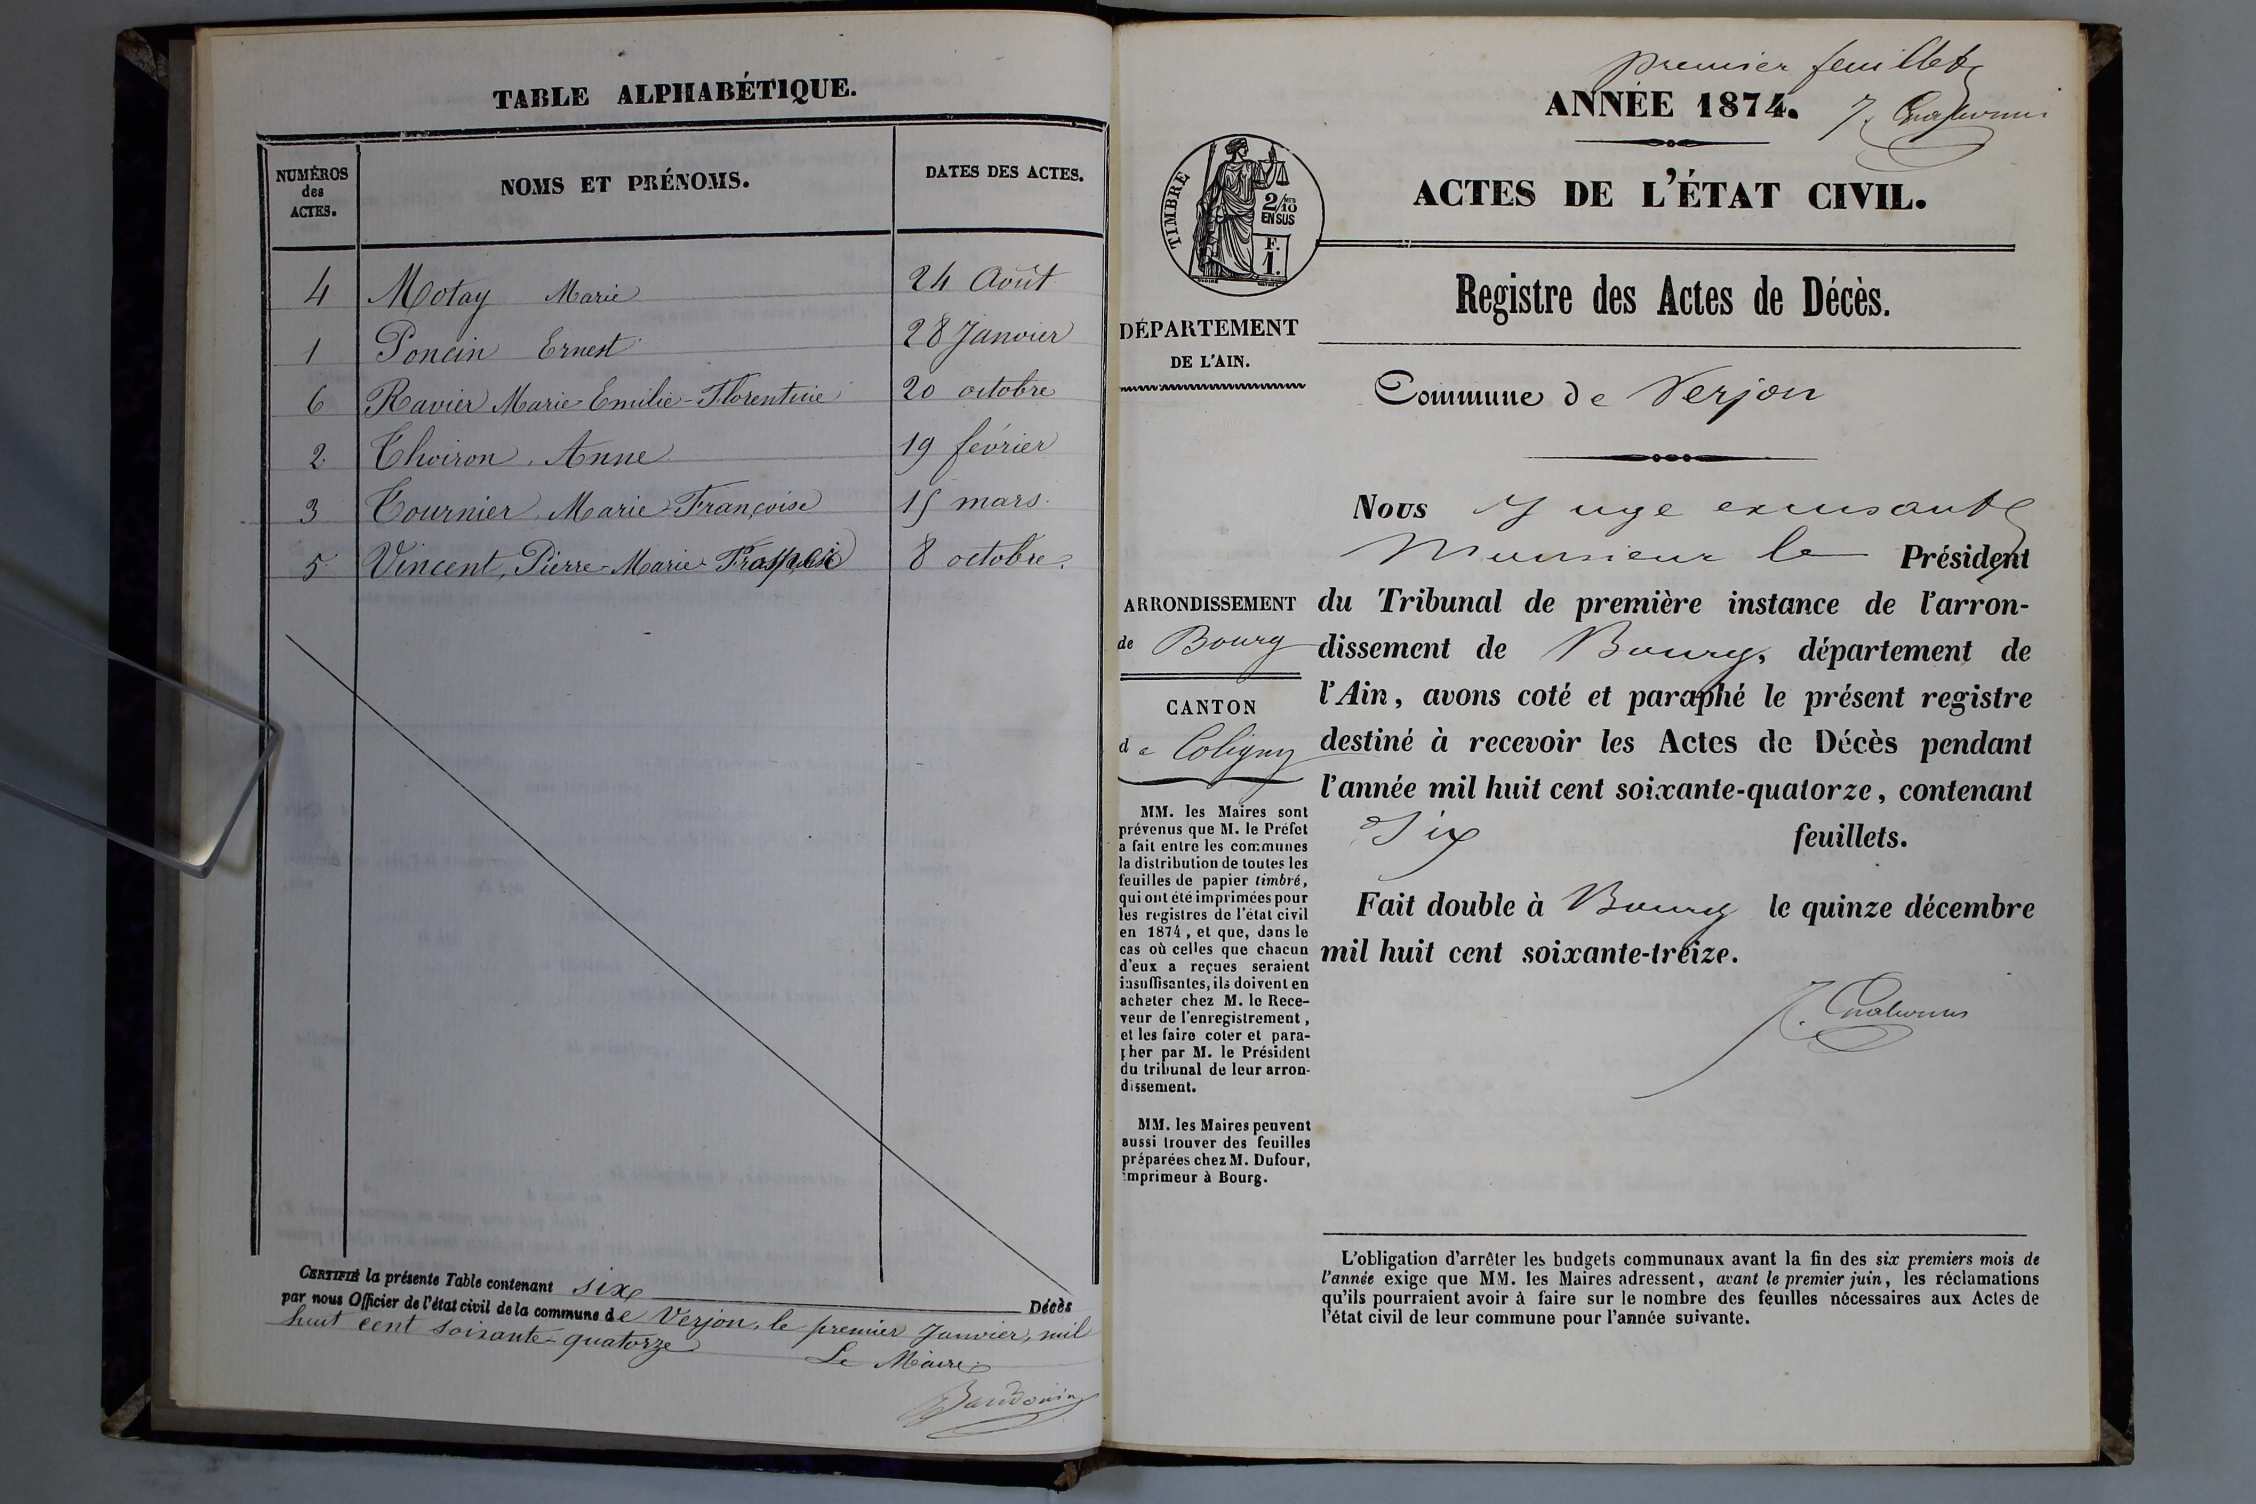 TABLE ALPHABÉTIQUE.
NUMÉROS des ACTES. NOMS ET PRÉNOMS. DATES DES ACTES.
4 Motay Marie 24 Août
1 Poncin Ernest 28 Janvier
6 Ravier Marie-Emilie-Florentine 20 octobre
2 Thoiron, Anne 19 février
3 Tournier, Marie-Françoise 15 mars
5 Vincent, Pierre-Marie 8 octobre.
CERTIFIÉ la présente Table contenant six Décès
par nous Officier de l'état civil de la commune de Verjon, le premier Janvier, mil
huit cent soixante-quatorze
Le Maire
Baudouin
premier feuillet
ANNÉE 1874.
ACTES DE L'ÉTAT CIVIL.
TIMBRE
2/10
EN SUS
F.
1.
Registre des Actes de Décès.
DÉPARTEMENT
DE L'AIN.
Commune de Verjon
ARRONDISSEMENT
de Bourg
CANTON
de Coligny
MM. les Maires sont
prévenus que M. le Préfet
a fait entre les communes
la distribution de toutes les
feuilles de papier timbré,
qui ont été imprimées pour
les registres de l'état civil
en 1874, et que, dans le
cas où celles que chacun
d'eux a reçues seraient
insuffisantes, ils doivent en
acheter chez M. le Rece-
veur de l'enregistrement,
et les faire coter et para-
pher par M. le Président
du tribunal de leur arron-
dissement.
MM. les Maires peuvent
aussi trouver des feuilles
préparées chez M. Dufour,
imprimeur à Bourg.
Nous Juge
Monsieur le Président
du Tribunal de première instance de l'arron-
dissement de Bourg, département de
l'Ain, avons coté et paraphé le présent registre
destiné à recevoir les Actes de Décès pendant
l'année mil huit cent soixante-quatorze, contenant
Six feuillets.
Fait double à Bourg le quinze décembre
mil huit cent soixante-treize.
L'obligation d'arrêter les budgets communaux avant la fin des six premiers mois de
l'année exige que MM. les Maires adressent, avant le premier juin, les réclamations
qu'ils pourraient avoir à faire sur le nombre des feuilles nécessaires aux Actes de
l'état civil de leur commune pour l'année suivante.